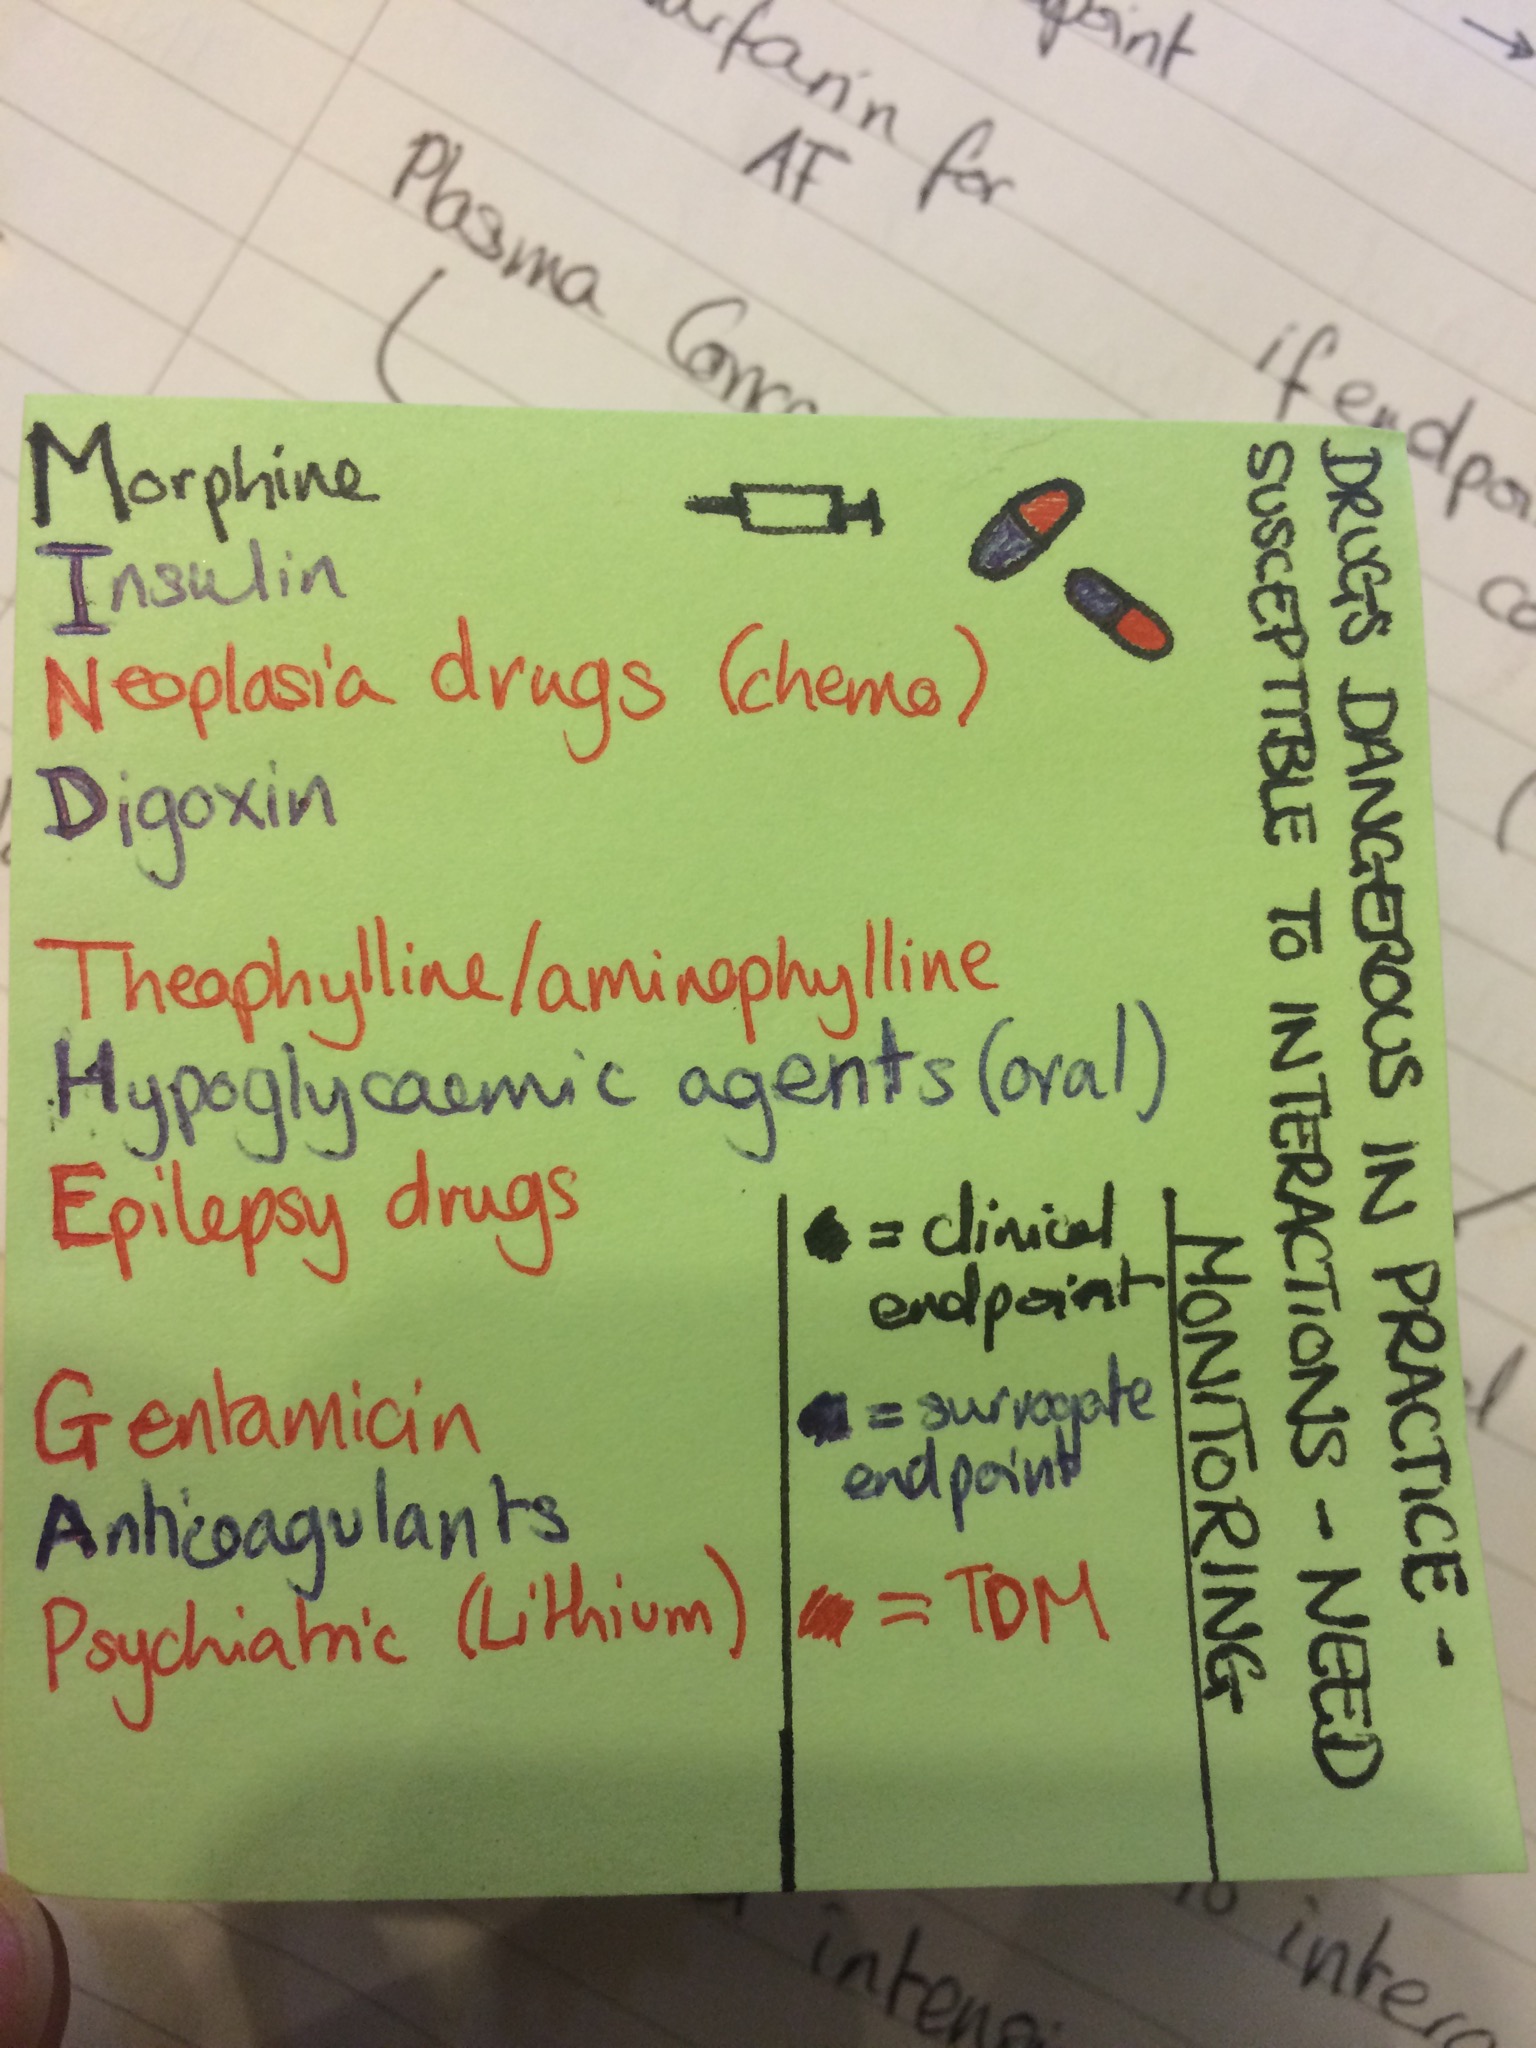 point
for
AF
Plasma
if endpoi
Morphine
Insulin
Neoplasia drugs (chemo)
Digoxin
Theophylline/aminophylline
Hypoglycaemic agents (oral)
Epilepsy drugs
Gentamicin
Anticoagulants
Psychiatric (Lithium)
= clinical
endpoint
= surrogate
endpoint
= TDM
DRUGS DANGEROUS IN PRACTICE -
SUSCEPTIBLE TO INTERACTIONS - NEED
MONITORING